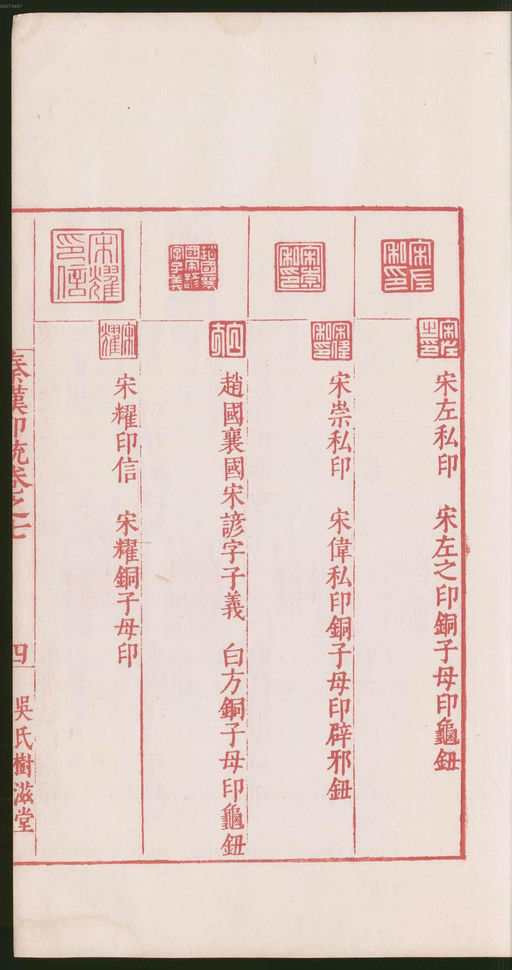 宋左私印　宋左之印銅子母印龜鈕
宋崇私印　宋偉私印銅子母印辟邪鈕
趙國襄國宋諺字子義　白方銅子母印龜鈕
宋耀印信　宋耀銅子母印
秦漢印統卷之七　四　吳氏樹滋堂